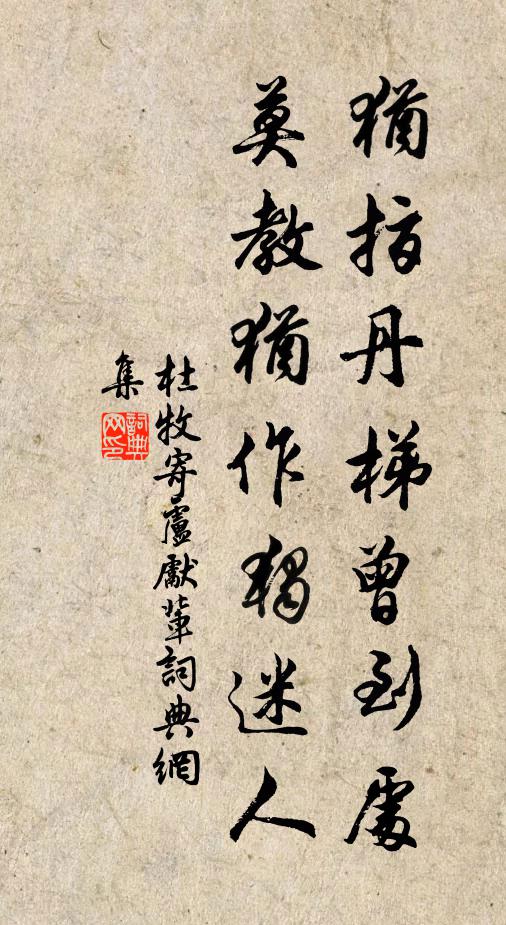 猶指丹梯曾到處
莫教猶作獨迷人
杜牧寄盧獻輩詞典網
集
詞典
网印